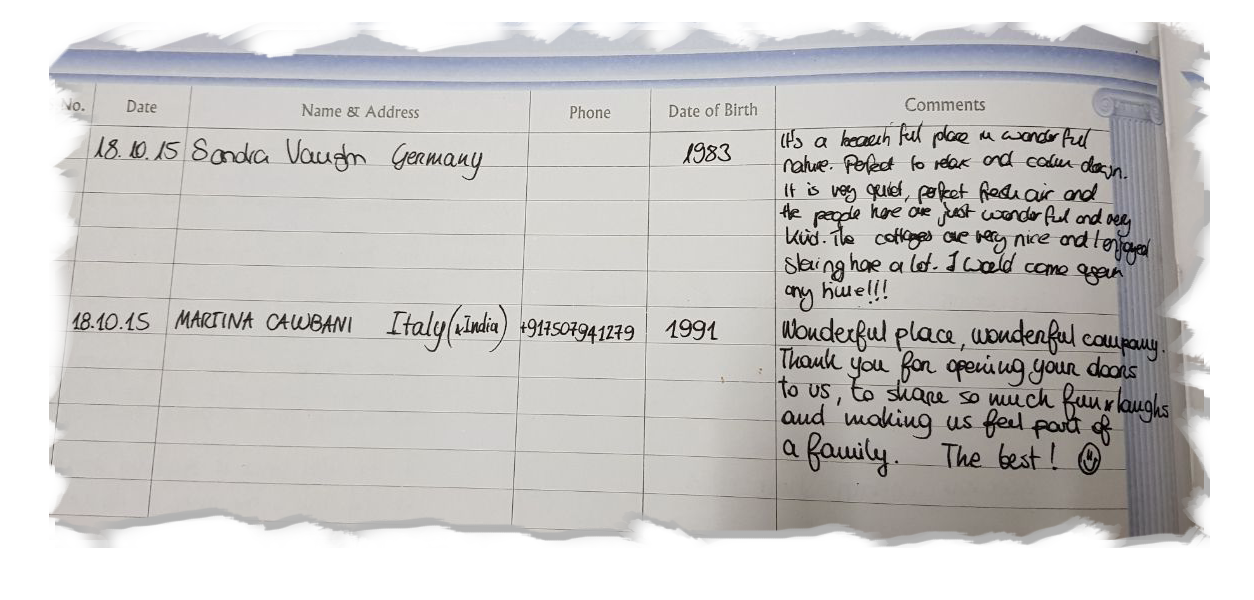 No. Date Name & Address Phone Date of Birth Comments
18.10.15 Sandra Vaughn Germany 1983
It's a beautiful place in wonderful
nature. Perfect to relax and calm down.
It is very quiet, perfect fresh air and
the people here are just wonderful and very
kind. The cottages are very nice and I enjoyed
staing here a lot. I would come again
any time!!!
18.10.15 MARTINA Italy (&India) +917507941279 1991
Wonderful place, wonderful company.
Thank you for opening your doors
to us, to share so much fun & laughs
and making us feel part of
a family. The best!